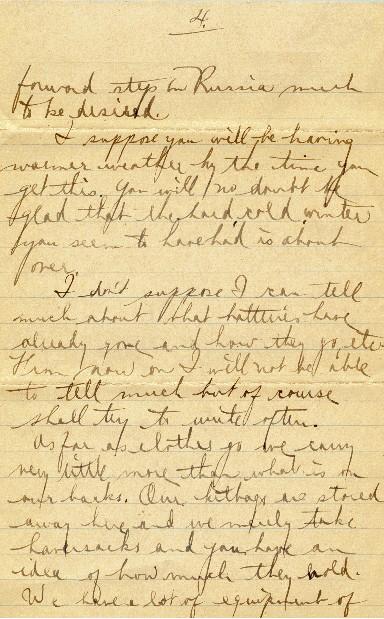 4.
forward step in Russia much
to be desired.
I suppose you will be having
warmer weather by the time you
get this. You will no doubt be
glad that the hard cold winter
you seem to have had is about
over.
I don't suppose I can tell
much about what batteries have
already gone and how they go, etc.
From now on I will not be able
to tell much but of course
shall try to write often.
As far as clothes go we carry
very little more than what is on
our backs. Our kitbags are stored
away here and we merely take
haversacks and you have an
idea of how much they hold.
We have a lot of equipment of